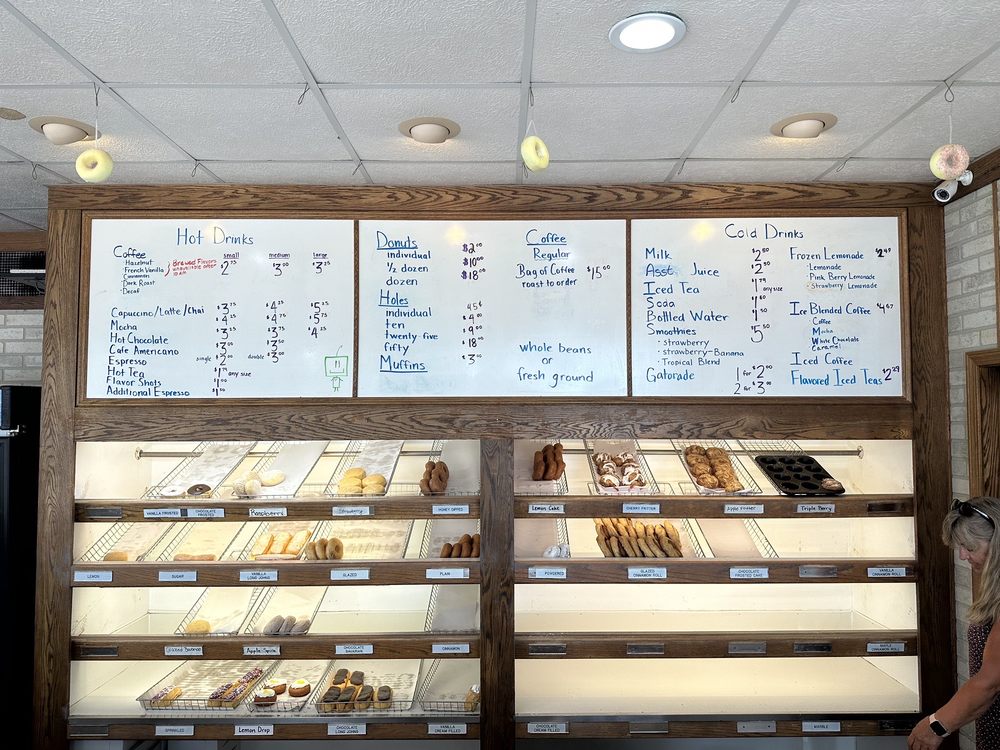 Hot Drinks
Coffee small medium large
Hazelnut
French Vanilla
Cinnamon
Dark Roast
Decaf
Brewed Flavors
unavailable after
10 AM
$2.75 $3.00 $3.25
Capuccino/Latte/Chai $3.75 $4.25 $5.25
Mocha
Hot Chocolate
Cafe Americano
Espresso single double
Hot Tea any size
Flavor Shots
Additional Espresso
Donuts
individual $2.00
1/2 dozen $10.00
dozen $18.00
Holes
individual 45¢
ten $4.00
twenty five $9.00
fifty $18.00
Muffins $3.00
Coffee
Regular
Bag of Coffee $15.00
roast to order
whole beans
or
fresh ground
Cold Drinks
Milk
Asst. Juice
Iced Tea any size
Soda
Bottled Water
Smoothies
· strawberry
· strawberry-Banana
· Tropical Blend
Gatorade 1 for $2.00
2 for $3.00
Frozen Lemonade $2.49
· Lemonade
· Pink Berry Lemonade
· Strawberry Lemonade
Ice Blended Coffee $4.67
Coffee
Mocha
White Chocolate
Caramel
Iced Coffee
Flavored Iced Teas $2.29
VANILLA FROSTED
CHOCOLATE FROSTED
Raspberry
Strawberry
HONEY DIPPED
Lemon Cake
CHERRY FRITTER
Apple Fritter
Triple Berry
LEMON
SUGAR
VANILLA LONG JOHNS
GLAZED
PLAIN
POWDERED
GLAZED CINNAMON ROLL
CHOCOLATE FROSTED CAKE
VANILLA CINNAMON ROLL
Glazed Bavarian
Apple Spice
CHOCOLATE BAVARIAN
CINNAMON
MAPLE CINNAMON ROLL
SPRINKLED
Lemon Drop
CHOCOLATE LONG JOHNS
VANILLA CREAM FILLED
CHOCOLATE CREAM FILLED
MARBLE